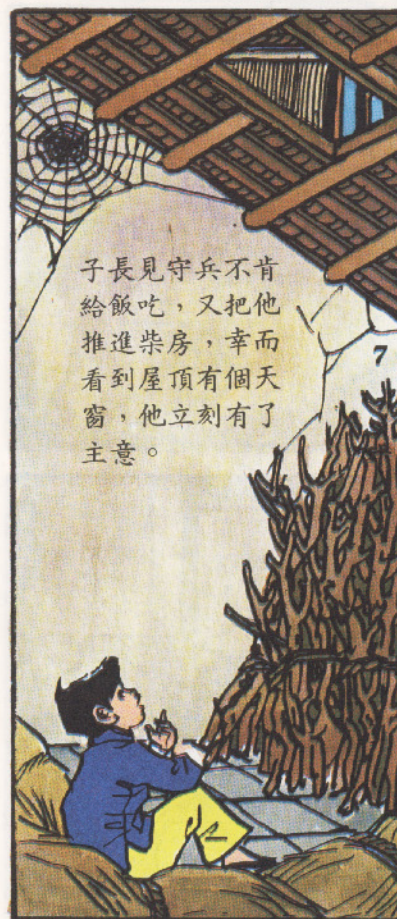 子長見守兵不肯
給飯吃，又把他
推進柴房，幸而
看到屋頂有個天
窗，他立刻有了
主意。
7